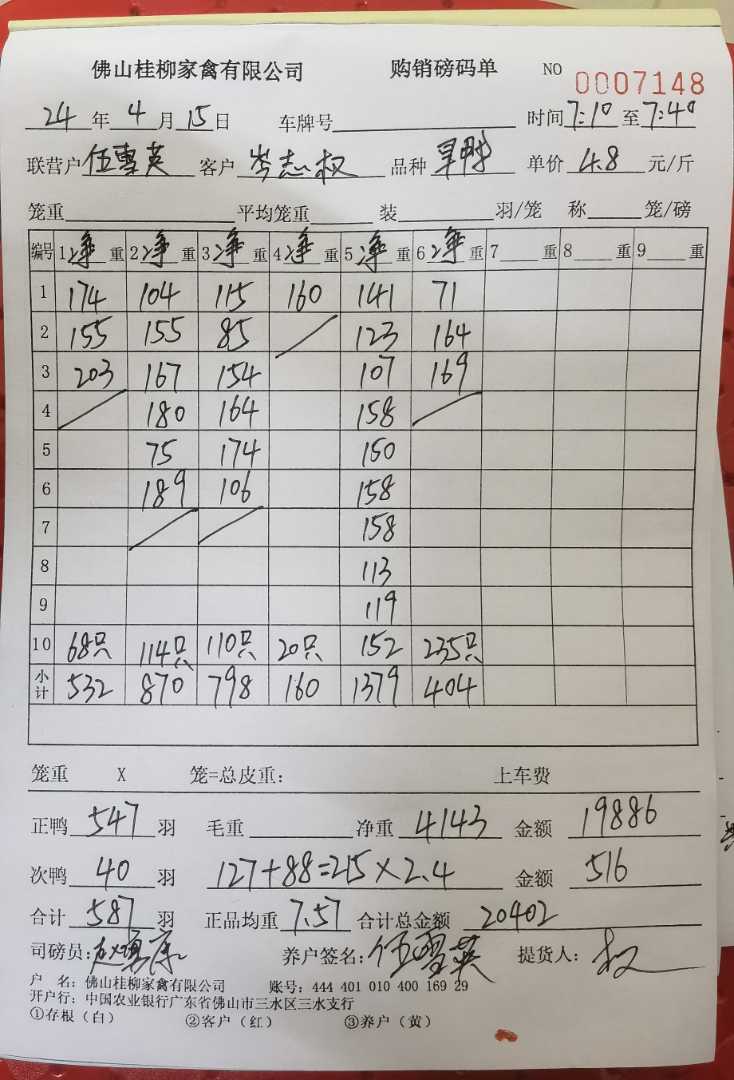 佛山桂柳家禽有限公司 购销磅码单 NO 0007148
24年4月15日 车牌号 时间7:10至7:40
联营户伍雪英 客户岑志权 品种 单价4.8元/斤
笼重 平均笼重 装 羽/笼 称 笼/磅
编号 1净重 2净重 3净重 4净重 5净重 6净重 7重 8重 9重
1 174 104 115 160 141 71
2 155 155 85 / 123 164
3 203 167 154 107 169
4 / 180 164 158 /
5 75 174 150
6 189 106 158
7 / / 158
8 113
9 119
10 68只 114只 110只 20只 152 235只
小计 532 870 798 160 1379 404
笼重 X 笼=总皮重: 上车费
正鸭547羽 毛重 净重4143 金额19886
次鸭40羽 127+88=215×2.4 金额516
合计587羽 正品均重7.57 合计总金额20402
司磅员: 养户签名:伍雪英 提货人:权
户 名: 佛山桂柳家禽有限公司 账号: 444 401 010 400 169 29
开户行: 中国农业银行广东省佛山市三水区三水支行
①存根(白) ②客户(红) ③养户(黄)